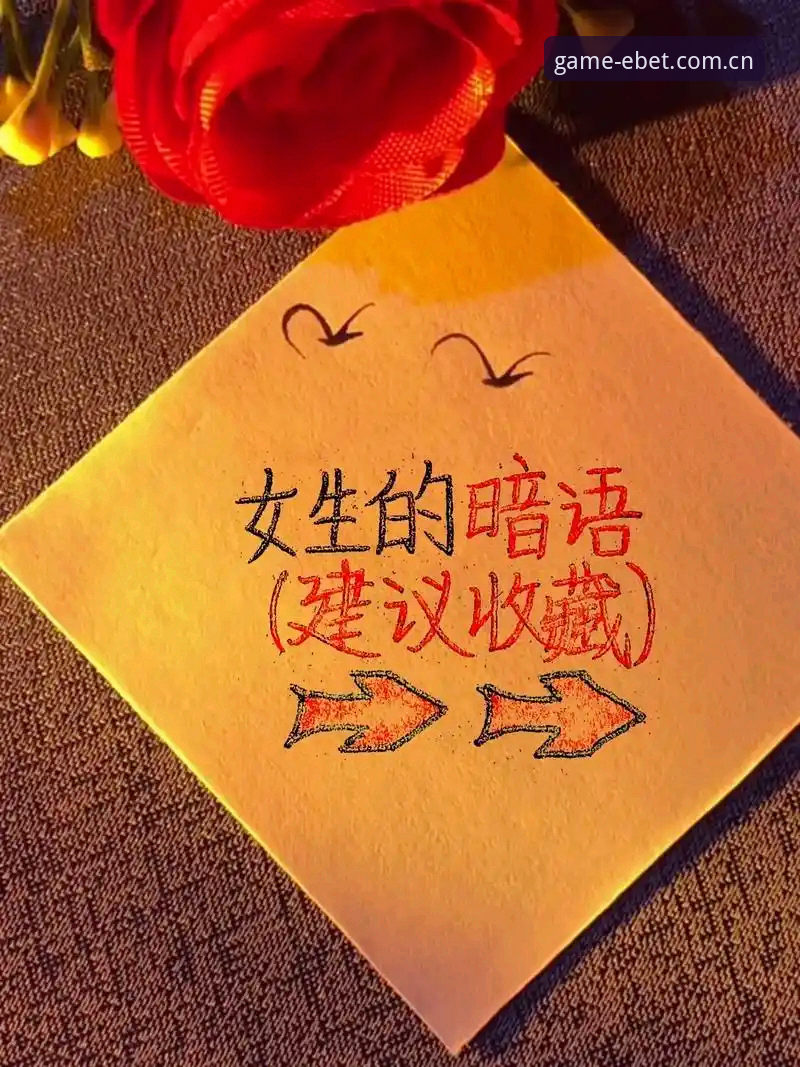 game-ebet.com.cn
女生的暗语
(建议收藏)